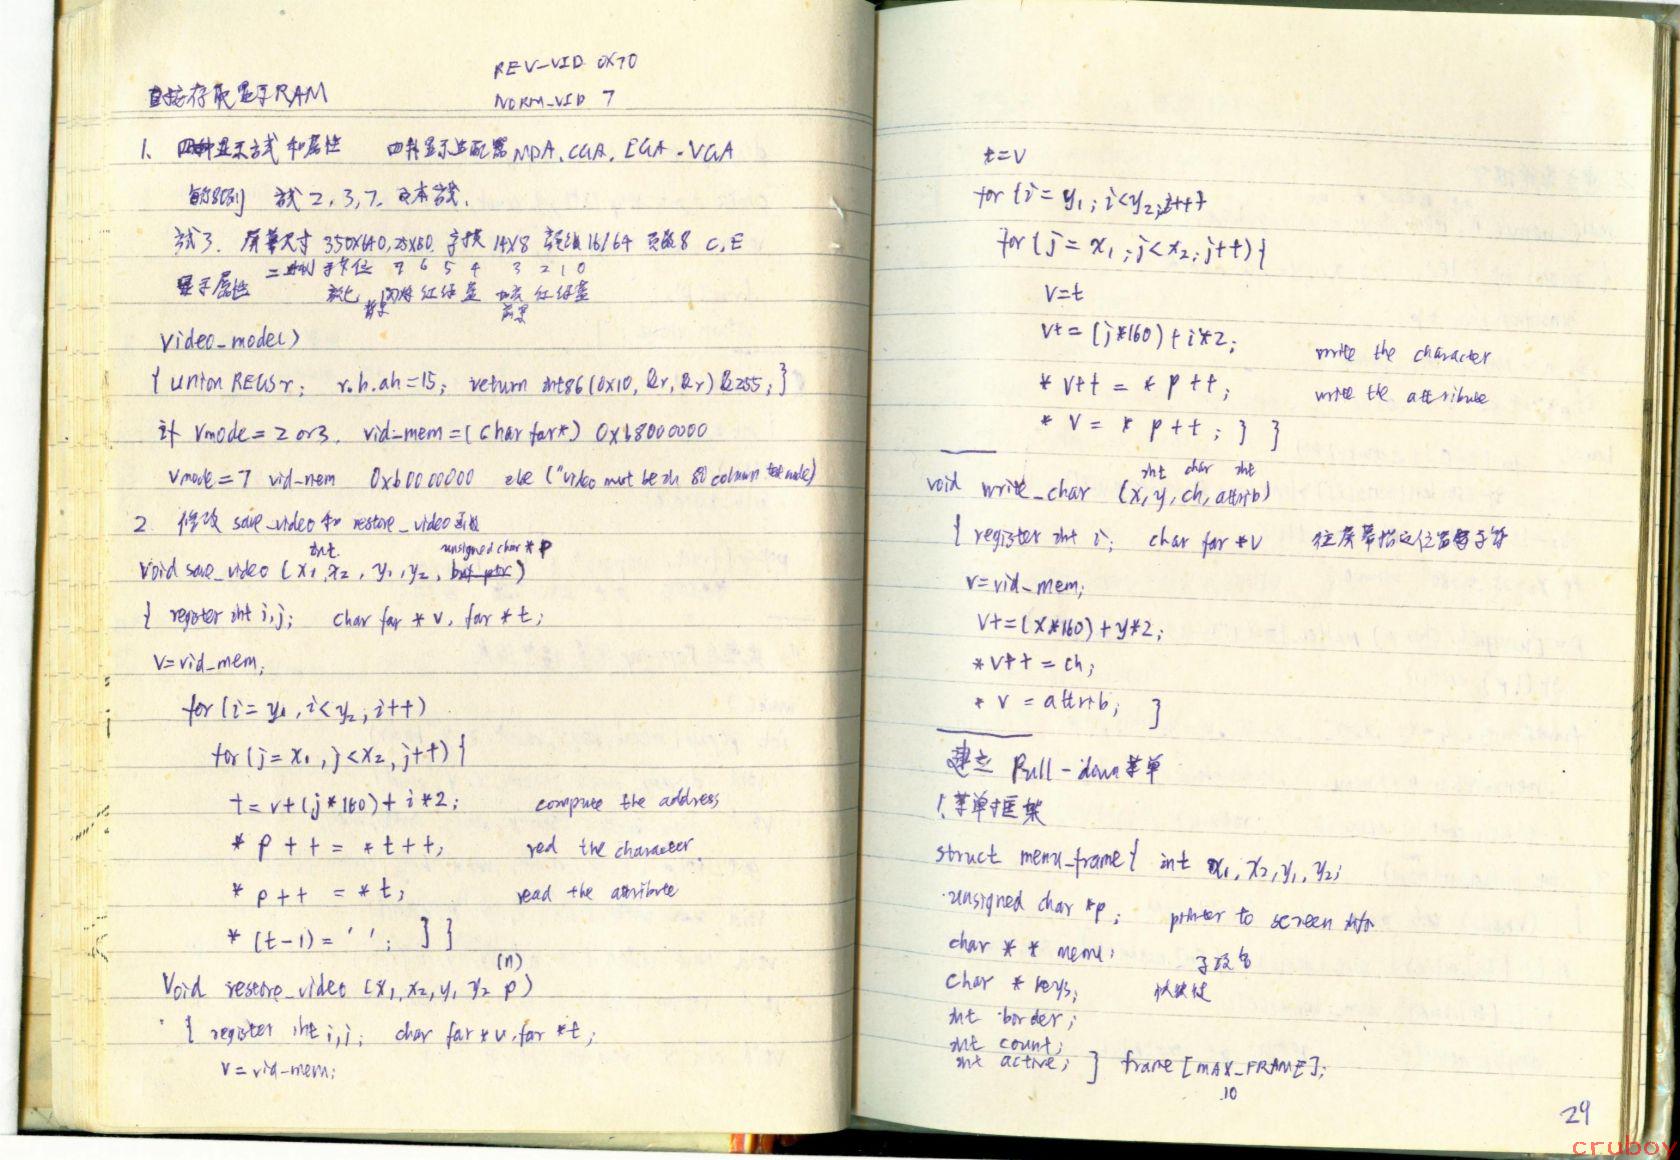 REV_VID 0X70
直接存取显示RAM NORM_VID 7
1. 四种显示方式和属性 四种显示适配器 MDA, CGA, EGA, VGA
方式 2, 3, 7 文本方式.
方式3. 屏幕尺寸 350X640, 25X80 字模 14X8 16/64 页数8 C,E
显示属性 二进制 字节位 7 6 5 4 3 2 1 0
闪烁 红绿蓝 加亮 红绿蓝
背景 前景
video_mode()
{ union REGS r; r.h.ah=15; return int86(0x10, &r, &r)&255; }
if vmode = 2 or 3. vid_mem = (char far*) 0xb8000000
vmode = 7 vid_mem 0xb0000000 else ("video must be in 80 column text mode)
2. 修改 save_video 和 restore_video 函数
int unsigned char * p
void save_video (x1, x2, y1, y2, buf_ptr)
{ register int i,j; char far * v, far * t;
v=vid_mem;
for (i=y1, i<y2; i++)
for (j=x1, j<x2, j++) {
t = v+(j*160)+i*2; compute the address
* p++ = *t++; read the character
* p++ = *t; read the attribute
* (t-1) = ' '; } }
(n)
Void restore_video (x1, x2, y1 y2 p)
{ register int i,j; char far * v, far *t;
v = vid_mem;
t=v
for (i= y1; i<y2; i++)
for (j= x1; j<x2; j++) {
v=t
v+=(j*160)+i*2;
write the character
* v++ = * p++; write the attribute
* v = * p++; } }
int char int
void write_char (x, y, ch, attrib)
{ register int i; char far *v 往屏幕指定位置写字符
v=vid_mem;
v+=(x*160)+y*2;
*v++ = ch;
* v = attrib; }
建立 Pull-down菜单
1. 菜单框架
struct menu_frame{ int x1, x2, y1, y2;
unsigned char *p; pointer to screen info
char * * menu;
char * keys; 热键
int border;
int count;
int active; } frame [MAX_FRAME];
10
29
cruboy